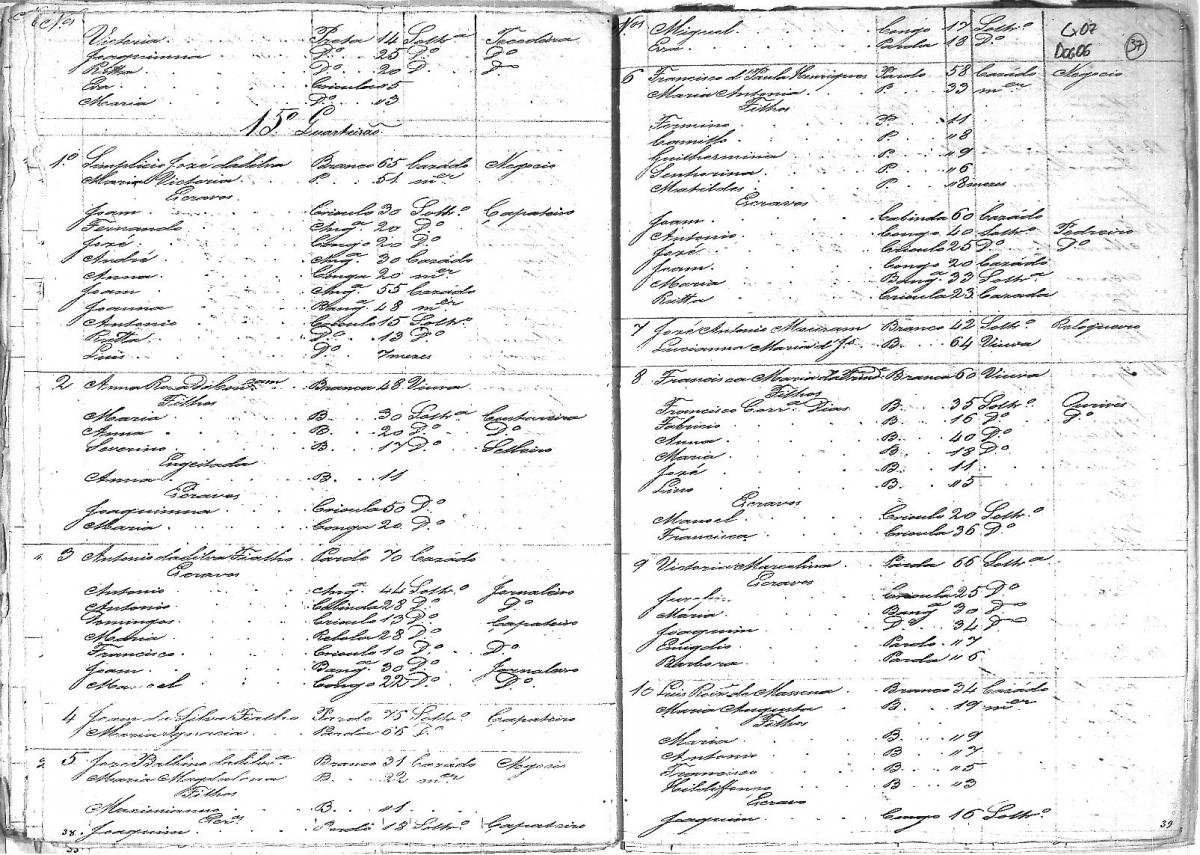 Victoria Preta 14 Solth.ª Tecedeira
Joaquinna D.º 25 D.º D.º
Ritta D.º 20 D D.º
Eva Crioula 5
Maria D.º 3
15º Quarteirão
1º Simplicio José da Silva Branco 65 Cazádo Negocio
Maria Victoria P. 51 m.er
Escravos
Joam Crioulo 30 Solth.º Çapateiro
Fernando Ang.ª 20 D.º
José Congo 20 D.º
André Ang.ª 30 Cazádo
Anna Conga 20 m.er
Joam Ang.ª 55 Cazádo
Joanna Bang.ª 48 m.er
Antonio Crioulo 15 Solth.º
Ritta D.º 13 D.º
Luis D.º 7 mezes
2 Anna Roza Branca 48 Viuva
Filhos
Maria B. 30 Solth.ª Custureira
Anna B. 20 D.º D.º
Severino B. 17 D.º Selleiro
Engeitada
Anna B. 11
Escravos
Joaquinna Crioula 50 D.º
Maria Conga 20 D.º
3 Antonio da Silva Fialho Pardo 70 Cazádo
Escravos
Antonio Ang.ª 44 Solth.º Jornaleiro
Antonio Cabinda 28 D.º D.º
Domingos Crioulo 13 D.º Çapateiro
Maria Rebola 28 D.º
Francisco Crioulo 10 D.º D.º
Joam Bang.ª 30 D.º Jornalero
Manoel Congo 22 D.º D.º
4 Joam da Silva Fialho Pardo 75 Solth.º Çapateiro
Maria Ignacia Parda 66 D.º
5 José Branco 31 Cazádo Negocio
Maria Magdalena B. 22 m.er
Filhos
Maximiano B. 1
Escr.os
38 Joaquim Pardo 18 Solth.º Çapateiro
N.os Miguel Congo 17 Solth.º
Eva Parda 18 D.º
Cx07
Doc06
37
6 Francisco d'Paula Henriques Pardo 58 Cazádo Negocio
Maria Antonia P. 33 m.er
Filhos
Fermino P. 11
Camillo P. 8
Guilhermina P. 9
Senhorina P. 6
Matildes P. 18 mezes
Escravos
Joam Cabinda 60 Cazádo
Antonio Congo 40 Solth.º Pedreiro
José Crioulo 25 D.º D.º
Joam Congo 20 Cazádo
Maria Bang.ª 33 Solth.ª
Ritta Crioula 23 Cazada
7 José Antonio Branco 42 Solth.º Relogoeiro
Lucianna Maria d'J.s B. 64 Viuva
8 Francisca Maria Branca 60 Viuva
Filhos
Francisco Corr.ª Dias B. 35 Solth.º Ourives
Fabricio B. 16 D.º D.º
Anna B. 40 D.º
Maria B. 18 D.º
José B. 11
Lino B. 5
Escravos
Manoel Crioulo 20 Solth.º
Francisca Crioula 36 D.º
9 Victoria Marcelina Parda 66 Solth.a
Escravos
Crioula 25 D.º
Maria Bang.ª 30 D.º
Joaquim D.º 34 D.º
Emigdio Pardo 7
Barbora Parda 6
10 Luis Roiz da Branco 34 Cazádo
Maria Augusta B. 19 m.er
Filhos
Maria B. 9
Antonio B. 7
Francisco B. 5
Hildifonso B. 3
Escravo
Joaquim Congo 16 Solth.º
39